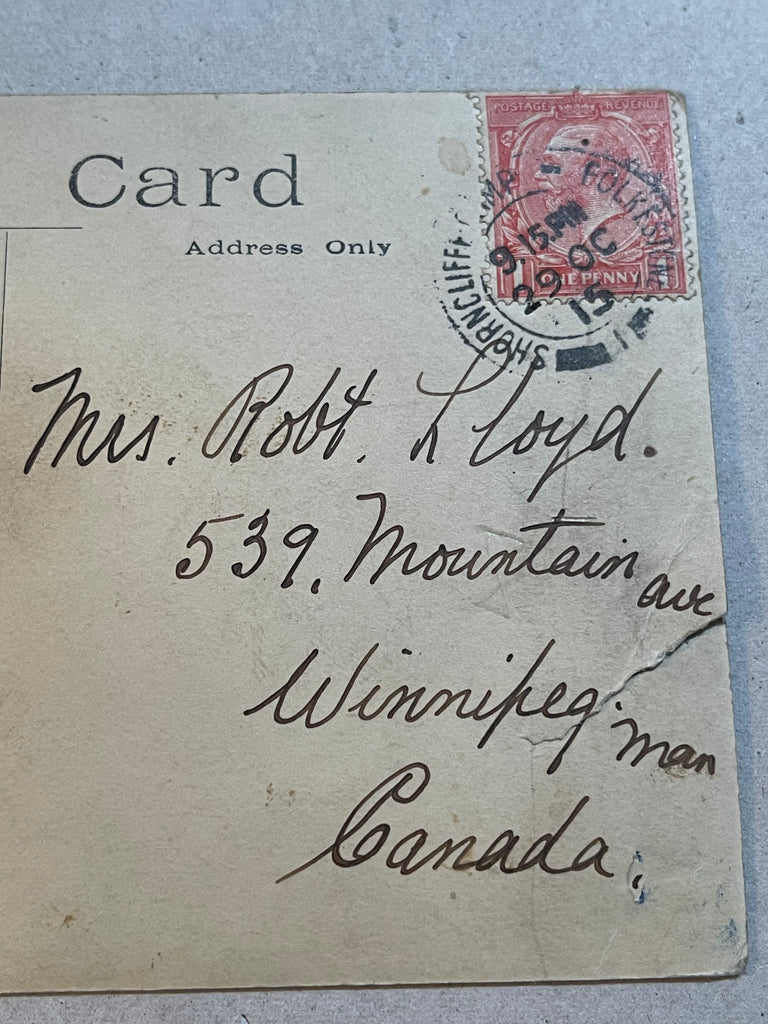 Card
Address Only
POSTAGE REVENUE
1 ONE PENNY
SHORNCLIFFE CAMP FOLKESTONE
9.15 PM
29 OC
15
Mrs. Robt. Lloyd.
539, Mountain ave
Winnipeg. Man
Canada,